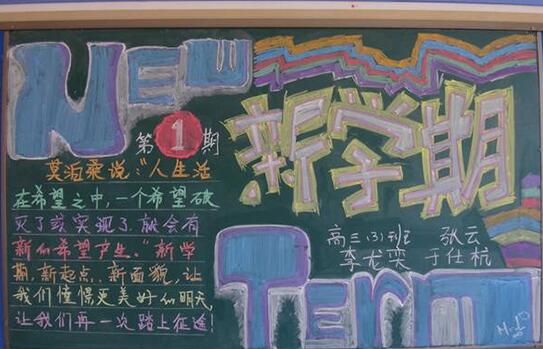 NEW
第1期
新学期
莫泊桑说:"人生活
在希望之中,一个希望破
灭了或实现了,就会有
新的希望产生。"新学
期,新起点、新面貌,让
我们憧憬更美好的明天,
让我们再一次踏上征途!
高三(3)班 张云
李龙奕 于仕杭
Term